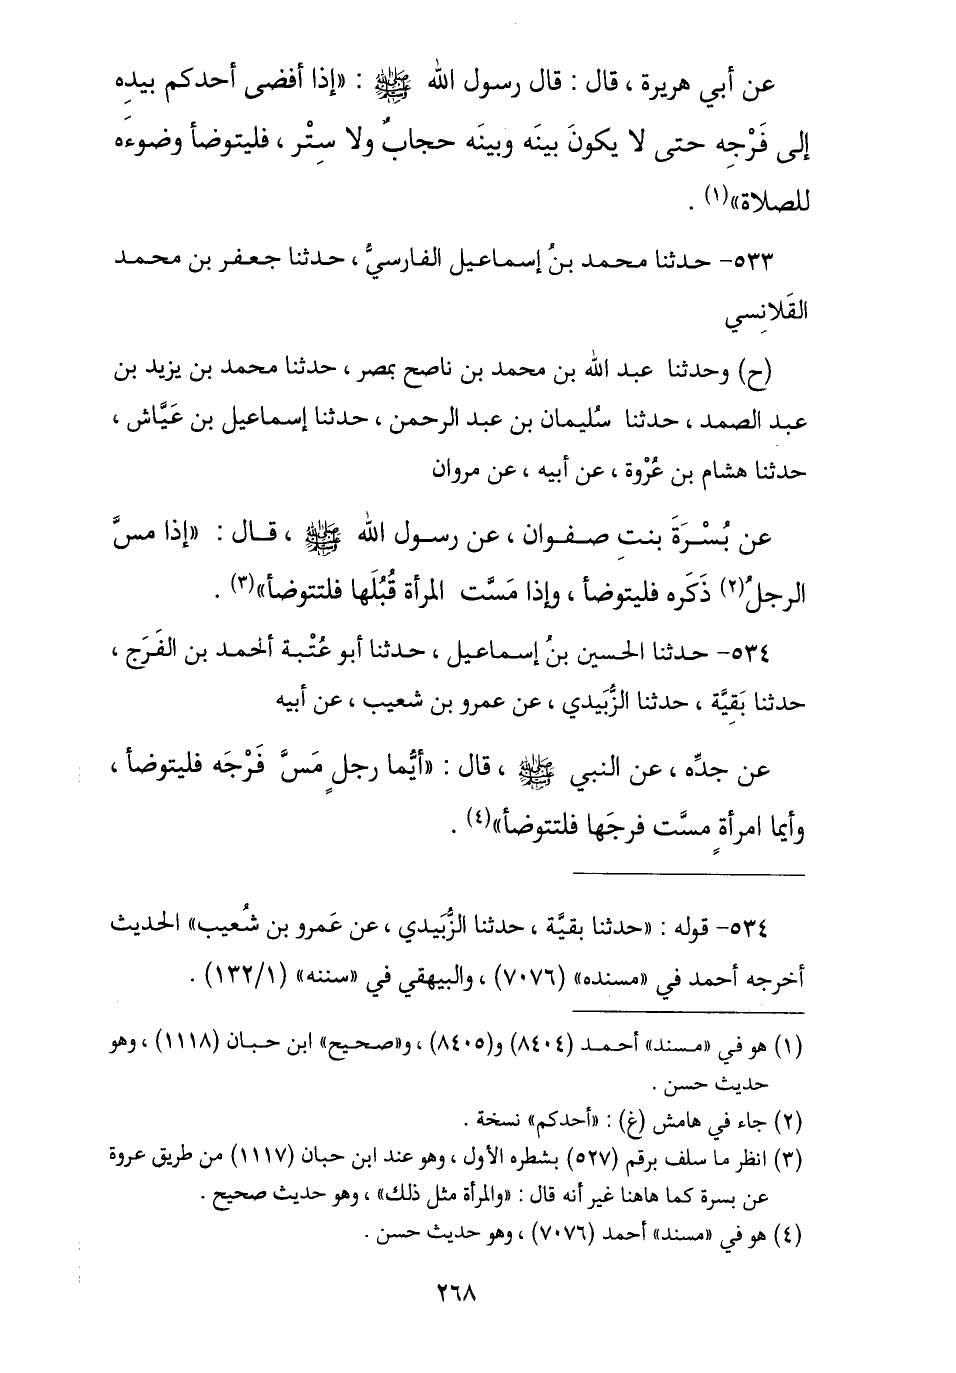 عن أبي هريرة ، قال : قال رسول الله ﷺ : «إذا أفضى أحدكم بيدِه
إلى فَرْجِه حتى لا يكونَ بينَه وبينَه حجابٌ ولا سِتْر ، فليتوضأ وضوءَه
للصلاة»(١) .
٥٣٣- حدثنا محمد بنُ إسماعيل الفارسيُّ ، حدثنا جعفر بن محمد
القَلانِسي
(ح) وحدثنا عبد الله بن محمد بن ناصح بمصر ، حدثنا محمد بن يزيد بن
عبد الصمد ، حدثنا سُليمان بن عبد الرحمن ، حدثنا إسماعيل بن عَيَّاش ،
حدثنا هشام بن عُرْوة ، عن أبيه ، عن مروان
عن بُسْرَةَ بنتِ صفوان ، عن رسول الله ﷺ ، قال : «إذا مسَّ
الرجلُ(٢) ذَكَره فليتوضأ ، وإذا مَسَّت المرأة قُبُلَها فلتتوضأ»(٣) .
٥٣٤- حدثنا الحسين بنُ إسماعيل ، حدثنا أبو عُتْبة أحمد بن الفَرَج ،
حدثنا بَقِيَّة ، حدثنا الزُّبَيدي ، عن عمرو بن شعيب ، عن أبيه
عن جدِّه ، عن النبي ﷺ ، قال : «أيُّما رجلٍ مَسَّ فَرْجَه فليتوضأ ،
وأيما امرأةٍ مسَّت فرجَها فلتتوضأ»(٤) .
٥٣٤- قوله : «حدثنا بقيَّة ، حدثنا الزُّبَيدي ، عن عَمرو بن شُعيب» الحديث
أخرجه أحمد في «مسنده» (٧٠٧٦) ، والبيهقي في «سننه» (١٣٢/١) .
(١) هو في «مسند» أحمد (٨٤٠٤) و(٨٤٠٥) ، و«صحيح» ابن حبان (١١١٨) ، وهو
حديث حسن .
(٢) جاء في هامش (غ) : «أحدكم» نسخة .
(٣) انظر ما سلف برقم (٥٢٧) بشطره الأول ، وهو عند ابن حبان (١١١٧) من طريق عروة
عن بسرة كما هاهنا غير أنه قال : «والمرأة مثل ذلك» ، وهو حديث صحيح .
(٤) هو في «مسند» أحمد (٧٠٧٦) ، وهو حديث حسن .
٢٦٨